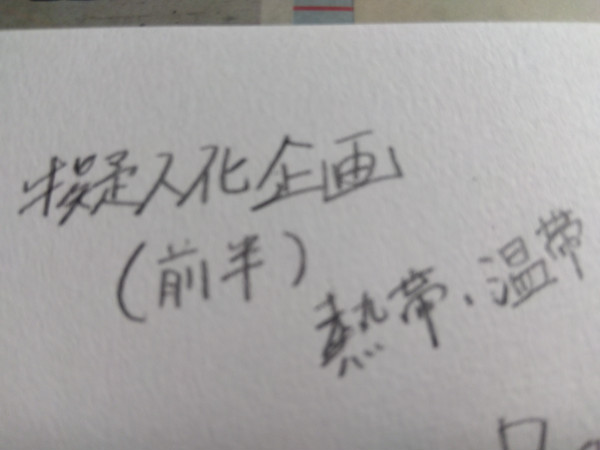 擬人化企画
(前半)
熱帯、温帯